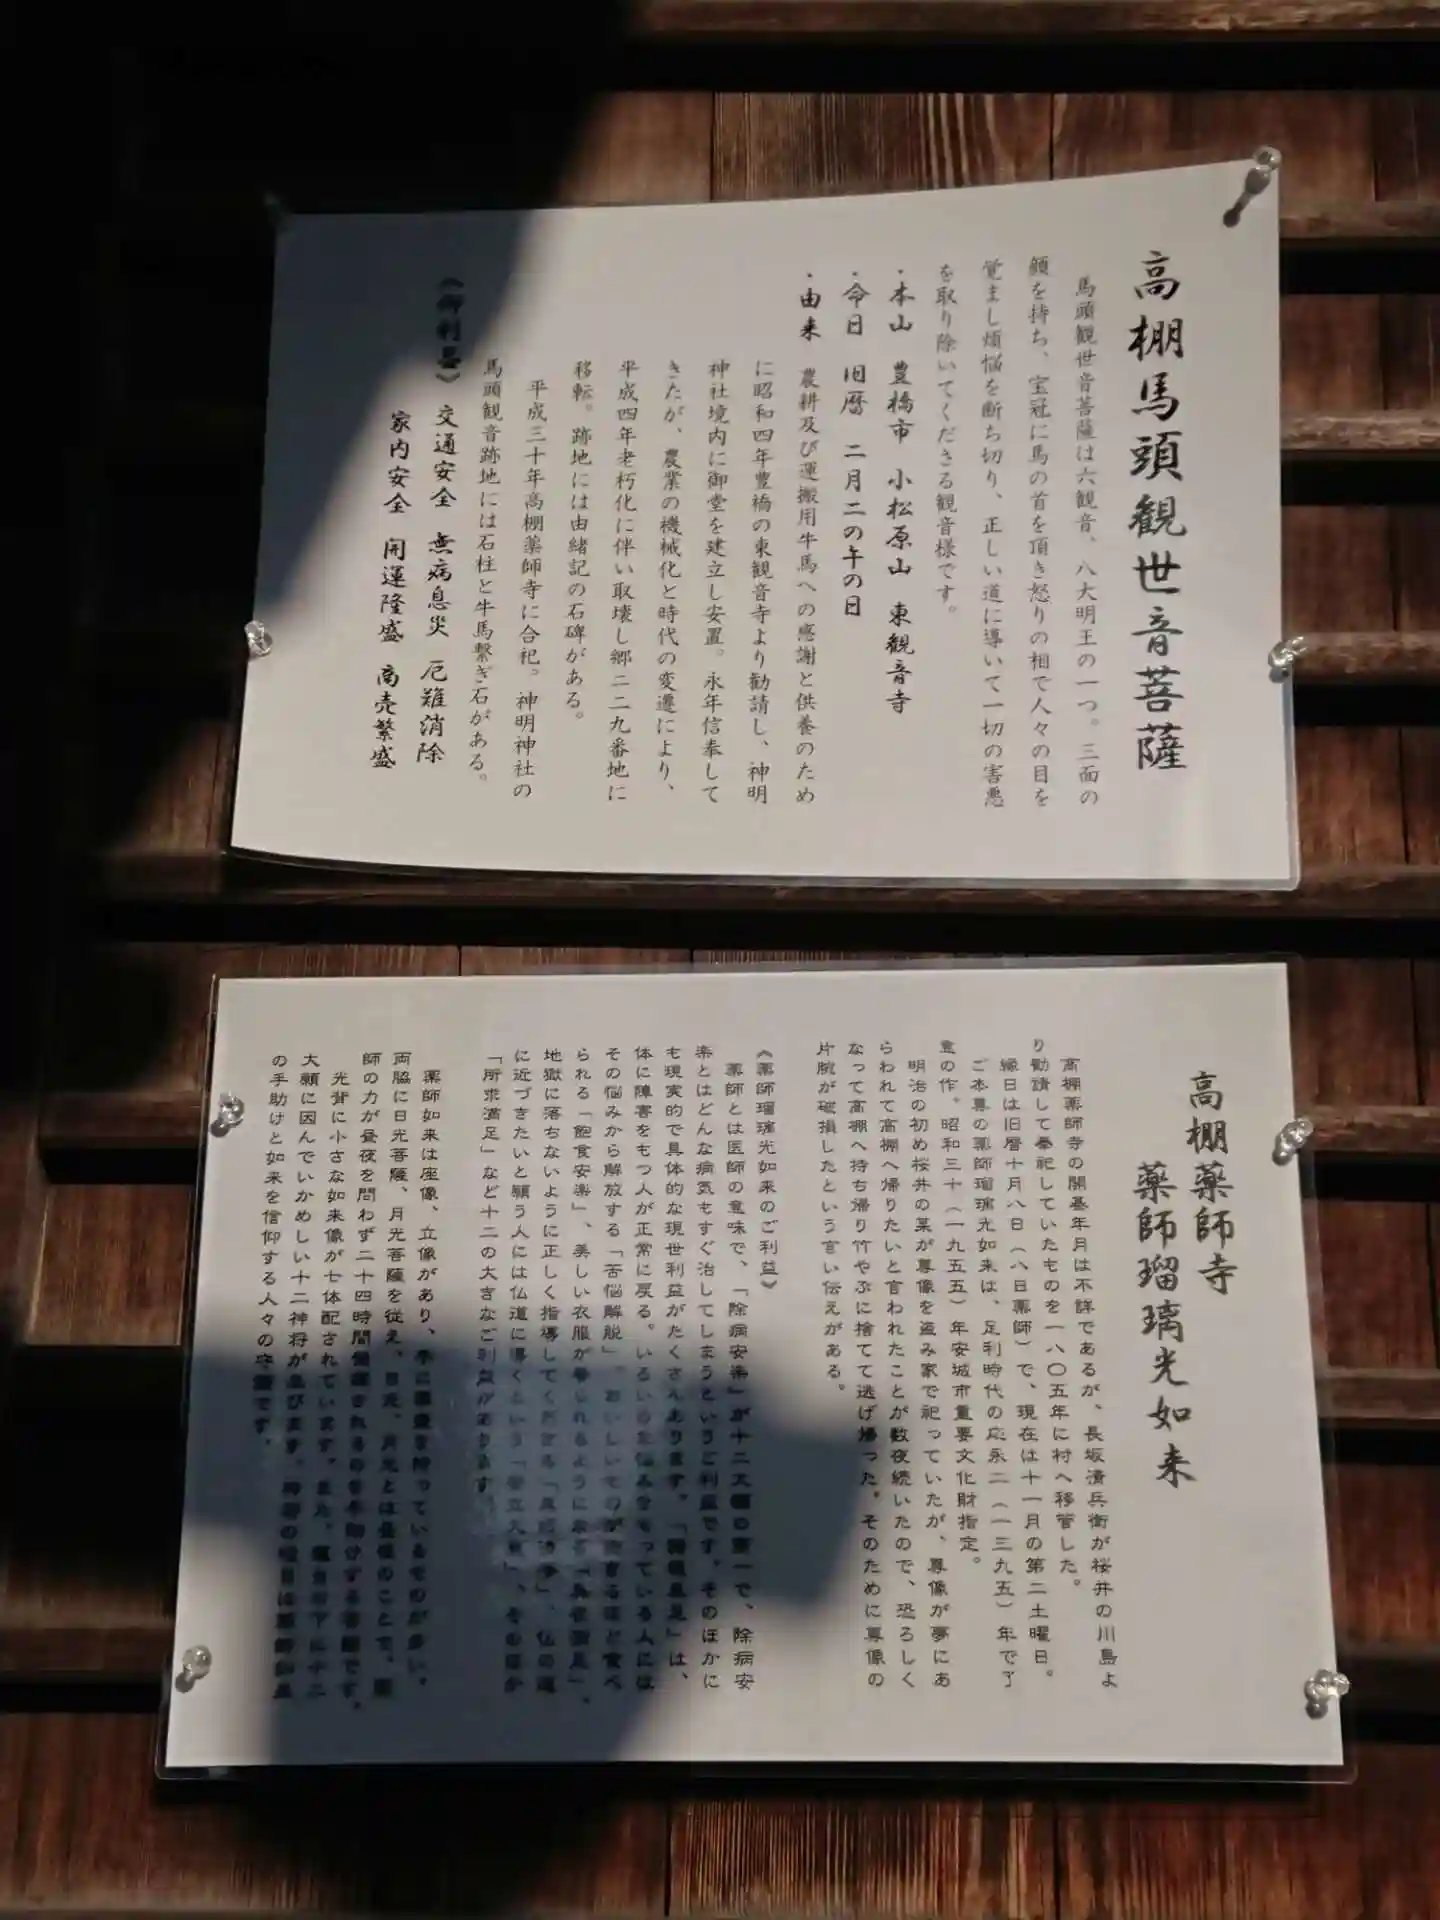 高棚馬頭観世音菩薩
馬頭観世音菩薩は六観音、八大明王の一つ。三面の
顔を持ち、宝冠に馬の首を頂き怒りの相で人々の目を
覚まし煩悩を断ち切り、正しい道に導いて一切の害悪
を取り除いてくださる観音様です。
・本山 豊橋市 小松原山 東観音寺
・命日 旧暦 二月二の午の日
・由来 農耕及び運搬用牛馬への感謝と供養のため
に昭和四年豊橋の東観音寺より勧請し、神明
神社境内に御堂を建立し安置。永年信奉して
きたが、農業の機械化と時代の変遷により、
平成四年老朽化に伴い取壊し郷二二九番地に
移転。跡地には由緒記の石碑がある。
平成三十年高棚薬師寺に合祀。神明神社の
馬頭観音跡地には石柱と牛馬繋ぎ石がある。
《御利益》 交通安全 無病息災 厄難消除
家内安全 開運隆盛 商売繁盛
高棚薬師寺
薬師瑠璃光如来
高棚薬師寺の開基年月は不詳であるが、長坂清兵衛が桜井の川島よ
り勧請して奉祀していたものを一八〇五年に村へ移管した。
縁日は旧暦十月八日（八日薬師）で、現在は十一月の第二土曜日。
ご本尊の薬師瑠璃光如来は、足利時代の応永二（一三九五）年で了
意の作。昭和三十（一九五五）年安城市重要文化財指定。
明治の初め桜井の某が尊像を盗み家で祀っていたが、尊像が夢にあ
らわれて高棚へ帰りたいと言われたことが数夜続いたので、恐ろしく
なって高棚へ持ち帰り竹やぶに捨てて逃げ帰った。そのために尊像の
片腕が破損したという言い伝えがある。
《薬師瑠璃光如来のご利益》
薬師とは医師の意味で、「除病安楽」が十二大願の第一で、除病安
楽とはどんな病気もすぐ治してしまうというご利益です。そのほかに
も現実的で具体的な現世利益がたくさんあります。「諸根具足」は、
体に障害をもつ人が正常に戻る。いろいろな悩みをもっている人には
その悩みから解放する「苦悩解脱」。おいしいものが満腹るほど食べ
られる「飽食安楽」、美しい衣服が得られるようになる「美衣満足」、
地獄に落ちないように正しく指導してくださる「具戒清浄」、仏の道
に近づきたいと願う人には仏道に導くという「安立大乗」、そのほか
「所求満足」など十二の大きなご利益があります。
薬師如来は座像、立像があり、手に薬壺を持っているものが多い。
両脇に日光菩薩、月光菩薩を従え、日光、月光とは昼夜のことで、薬
師の力が昼夜を問わず二十四時間発揮されるのを手助けする菩薩です。
光背に小さな如来像が七体配されています。また、薬師の下に十二
大願に因んでいかめしい十二神将が並びます。神将の役目は薬師如来
の手助けと如来を信仰する人々の守護です。